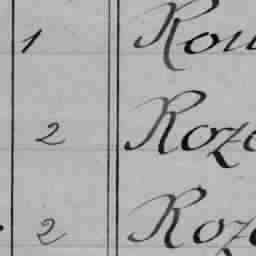 1 Rou
2 Roze
2 Roz